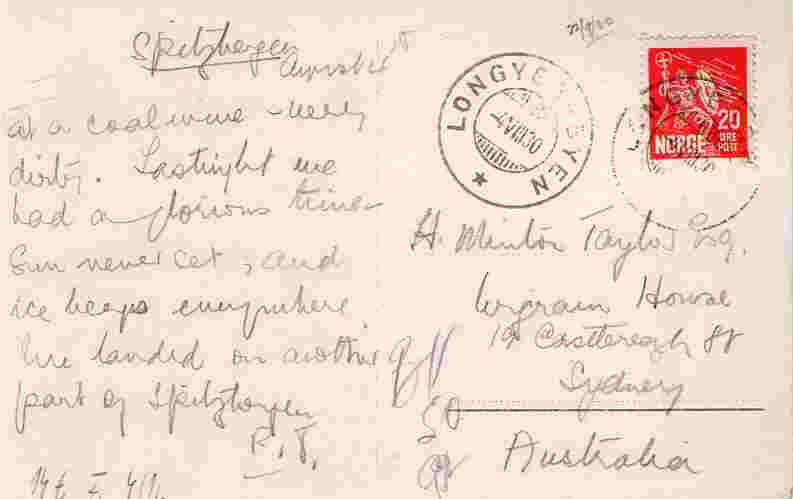 Spitzbergen
August 1st
at a coal mine - very
dirty. Last night we
had a glorious time
Sun never set, and
ice heaps everywhere.
We landed on another
part of Spitzbergen
P.T.
LONGYEARBYEN
4 VIII 30
20
ØRE
POST
NORGE
H. Minton Taylor Esq.
Wigram House
19 Castlereagh St
Sydney
Australia